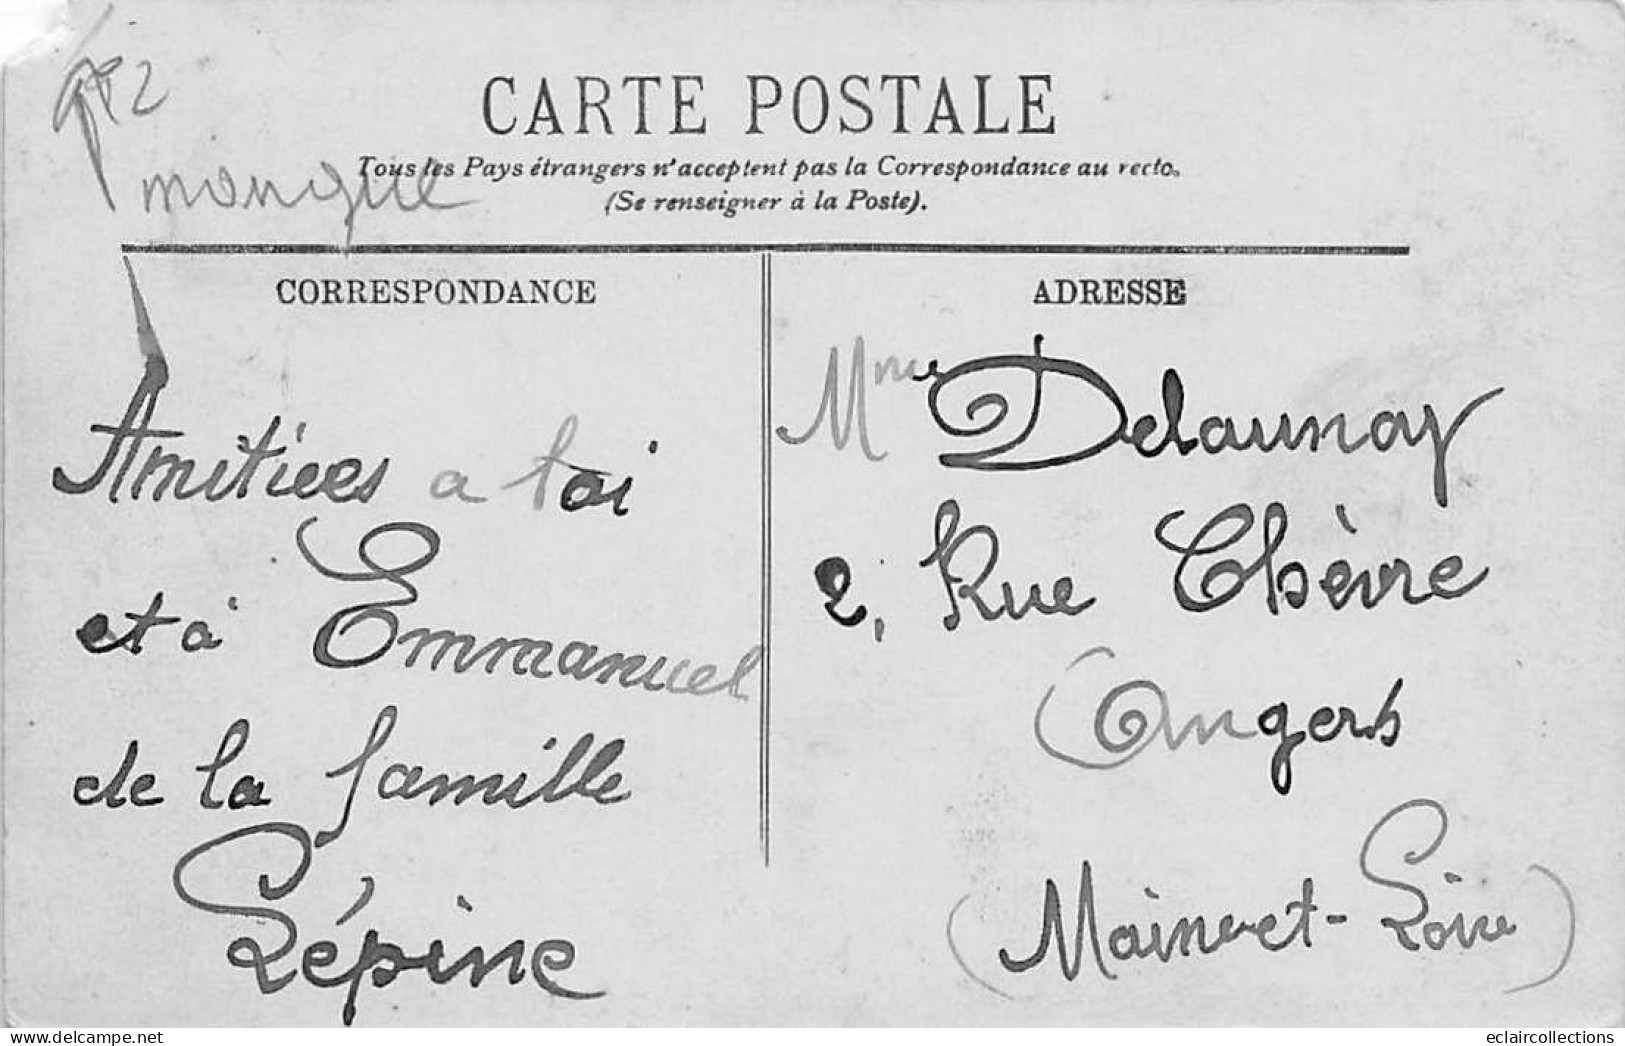 manque
CARTE POSTALE
Tous les Pays étrangers n'acceptent pas la Correspondance au recto.
(Se renseigner à la Poste).
CORRESPONDANCE
Amitiées a toi
et à Emmanuel
de la famille
Lépine
ADRESSE
Mme Delaunay
2, Rue Chèvre
Angers
(Maine-et-Loire)
delcampe.net
eclaircollections